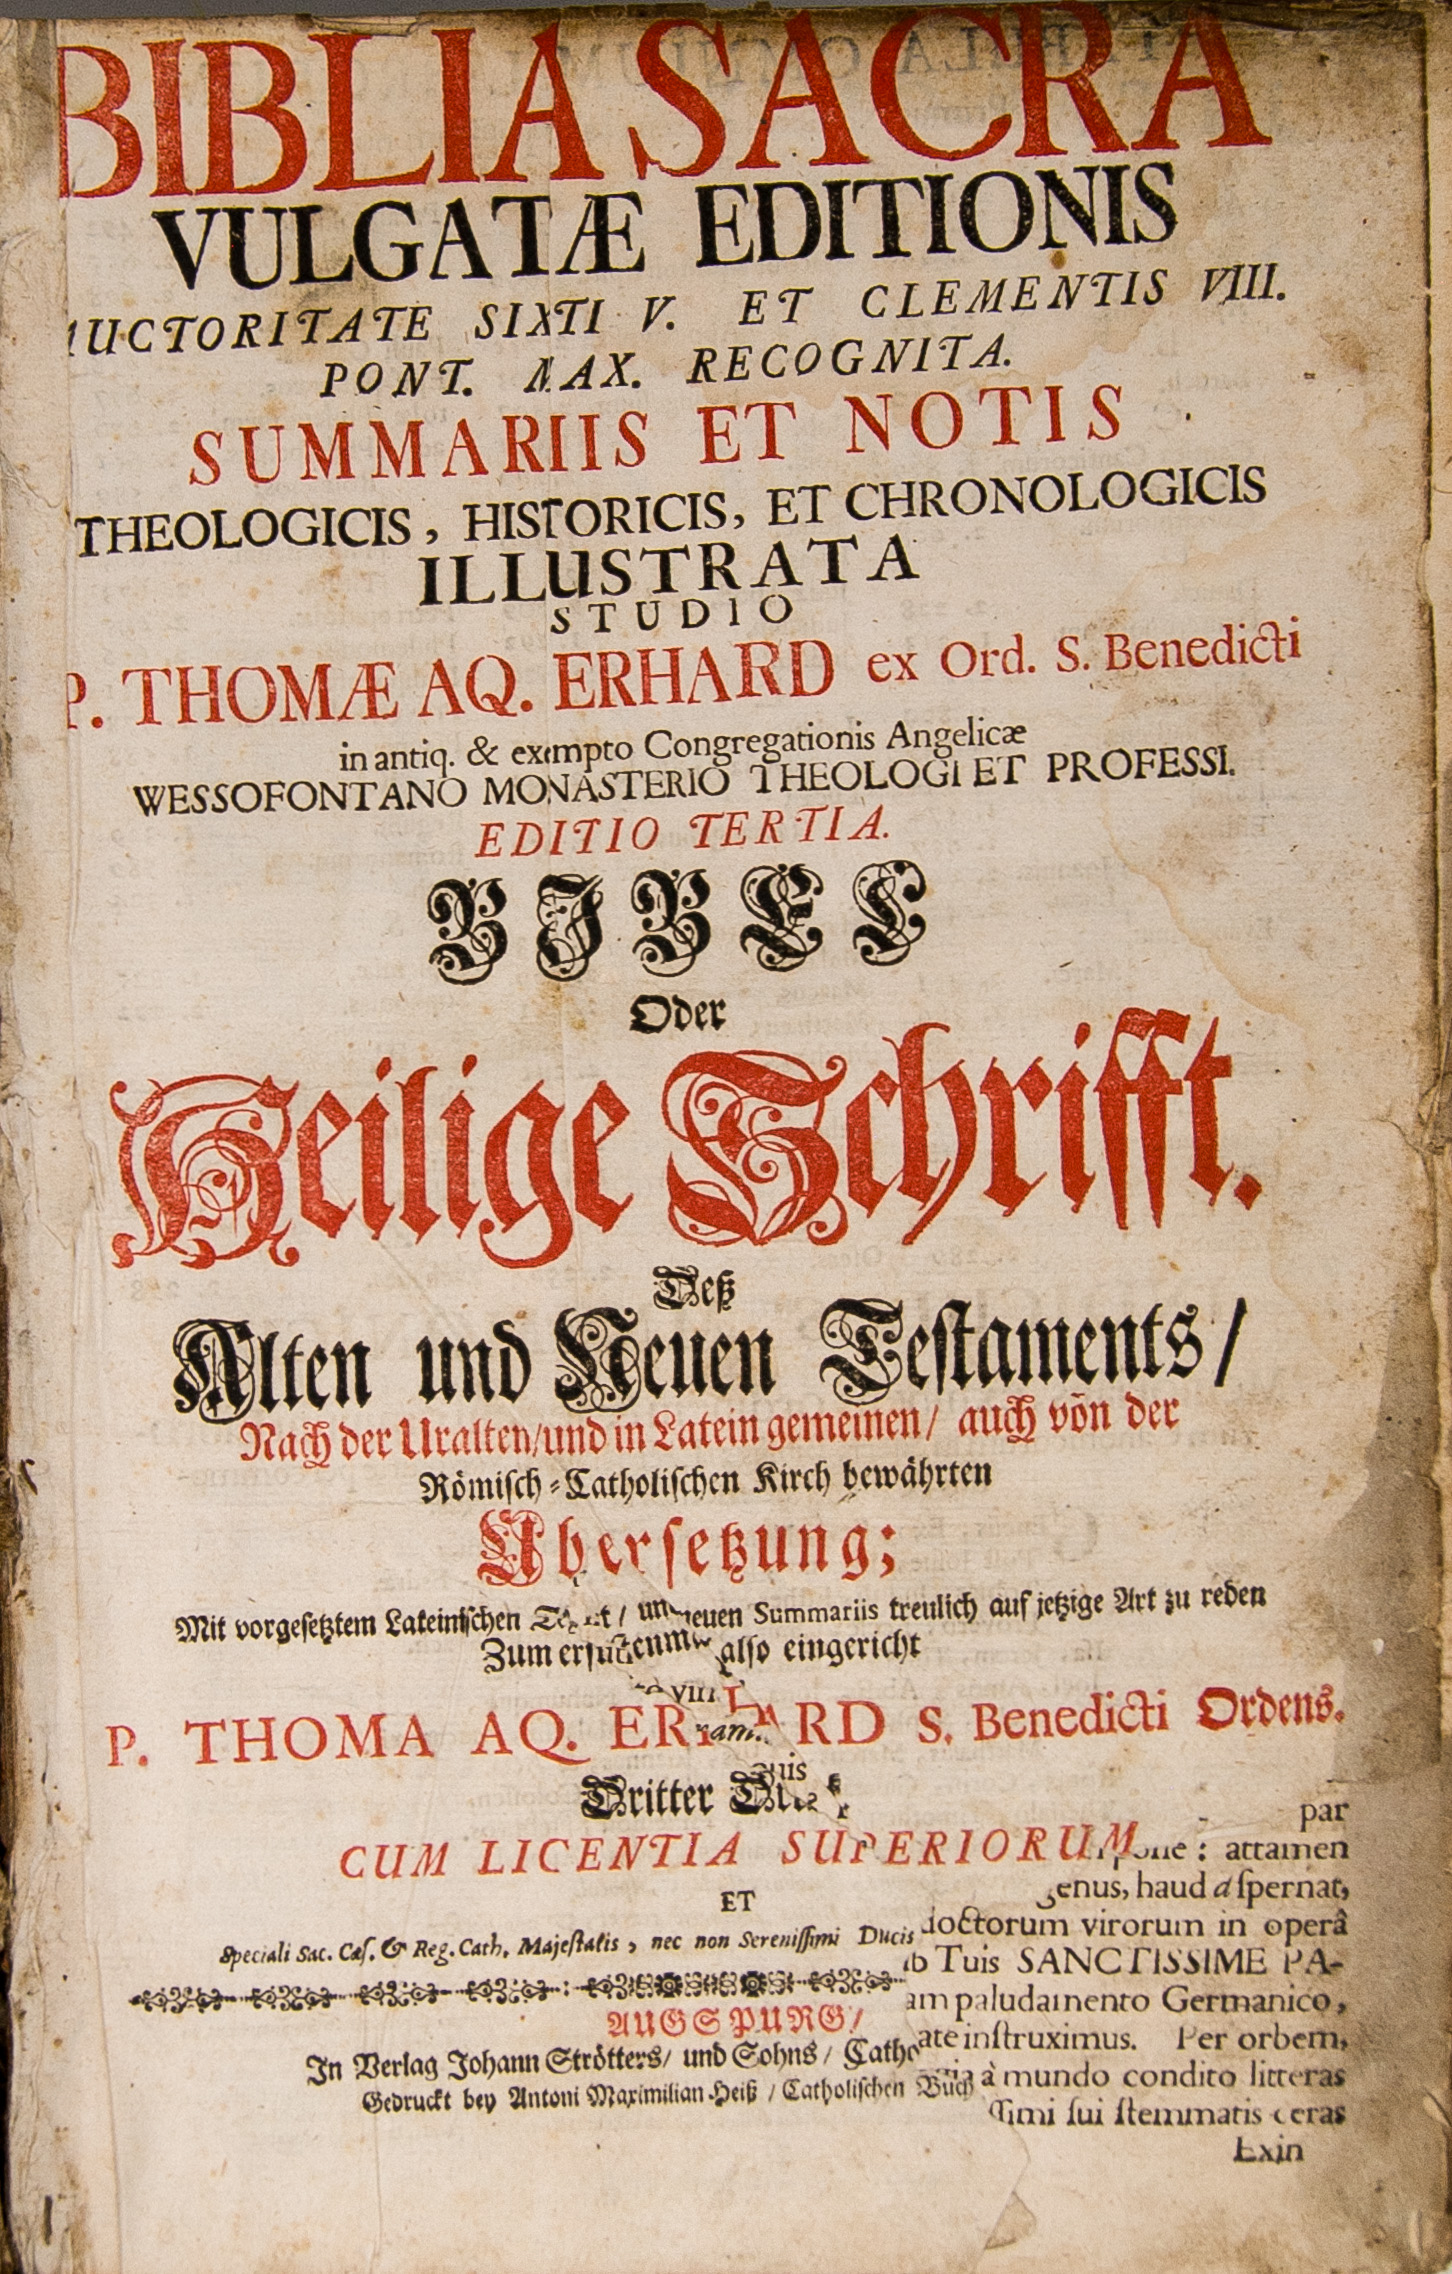 BIBLIA SACRA
VULGATÆ EDITIONIS
AUCTORITATE SIXTI V. ET CLEMENTIS VIII.
PONT. MAX. RECOGNITA.
SUMMARIIS ET NOTIS
THEOLOGICIS, HISTORICIS, ET CHRONOLOGICIS
ILLUSTRATA
STUDIO
P. THOMÆ AQ. ERHARD ex Ord. S. Benedicti
in antiq. & exempto Congregationis Angelicæ
WESSOFONTANO MONASTERIO THEOLOGI ET PROFESSI.
EDITIO TERTIA.
BIBEL
Oder
Heilige Schrifft.
Deß
Alten und Neuen Testaments/
Nach der Uralten/und in Latein gemeinen/ auch von der
Römisch-Catholischen Kirch bewährten
Ubersetzung;
Mit vorgesetztem Lateinischen /  neuen Summariis treulich auf jetzige Art zu reden
Zum also eingericht
P. THOMA AQ. ERHARD S. Benedicti Ordens.
Dritter
CUM LICENTIA SUPERIORUM
ET
Speciali Sac. Cæs. & Reg. Cath. Majestatis, nec non Serenissimi Ducis
AUGSPURG/
In Verlag Johann Strötters/ und Sohns/ Catho
Gedruckt bey Antoni Maximilian Heiß/ Catholischen Buch
par
: attamen
enus, haud aspernat,
doctorum virorum in operâ
b Tuis SANCTISSIME PA-
am paludamento Germanico,
ate instruximus. Per orbem,
à mundo condito litteras
ssimi sui stemmatis ceras
Exin